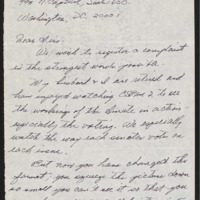 Washington, DC. 20001
Dear Sirs:
We wish to register a complaint
in the strongest words possible.
My husband & I are retired and
have enjoyed watching CSPan 2 to see
the workings of the Senate in action -
especially the voting. We especially
watch the way each senator votes on
each issue.
But now you have changed the
format, you squeeze the picture down
so small you can't see it so that you